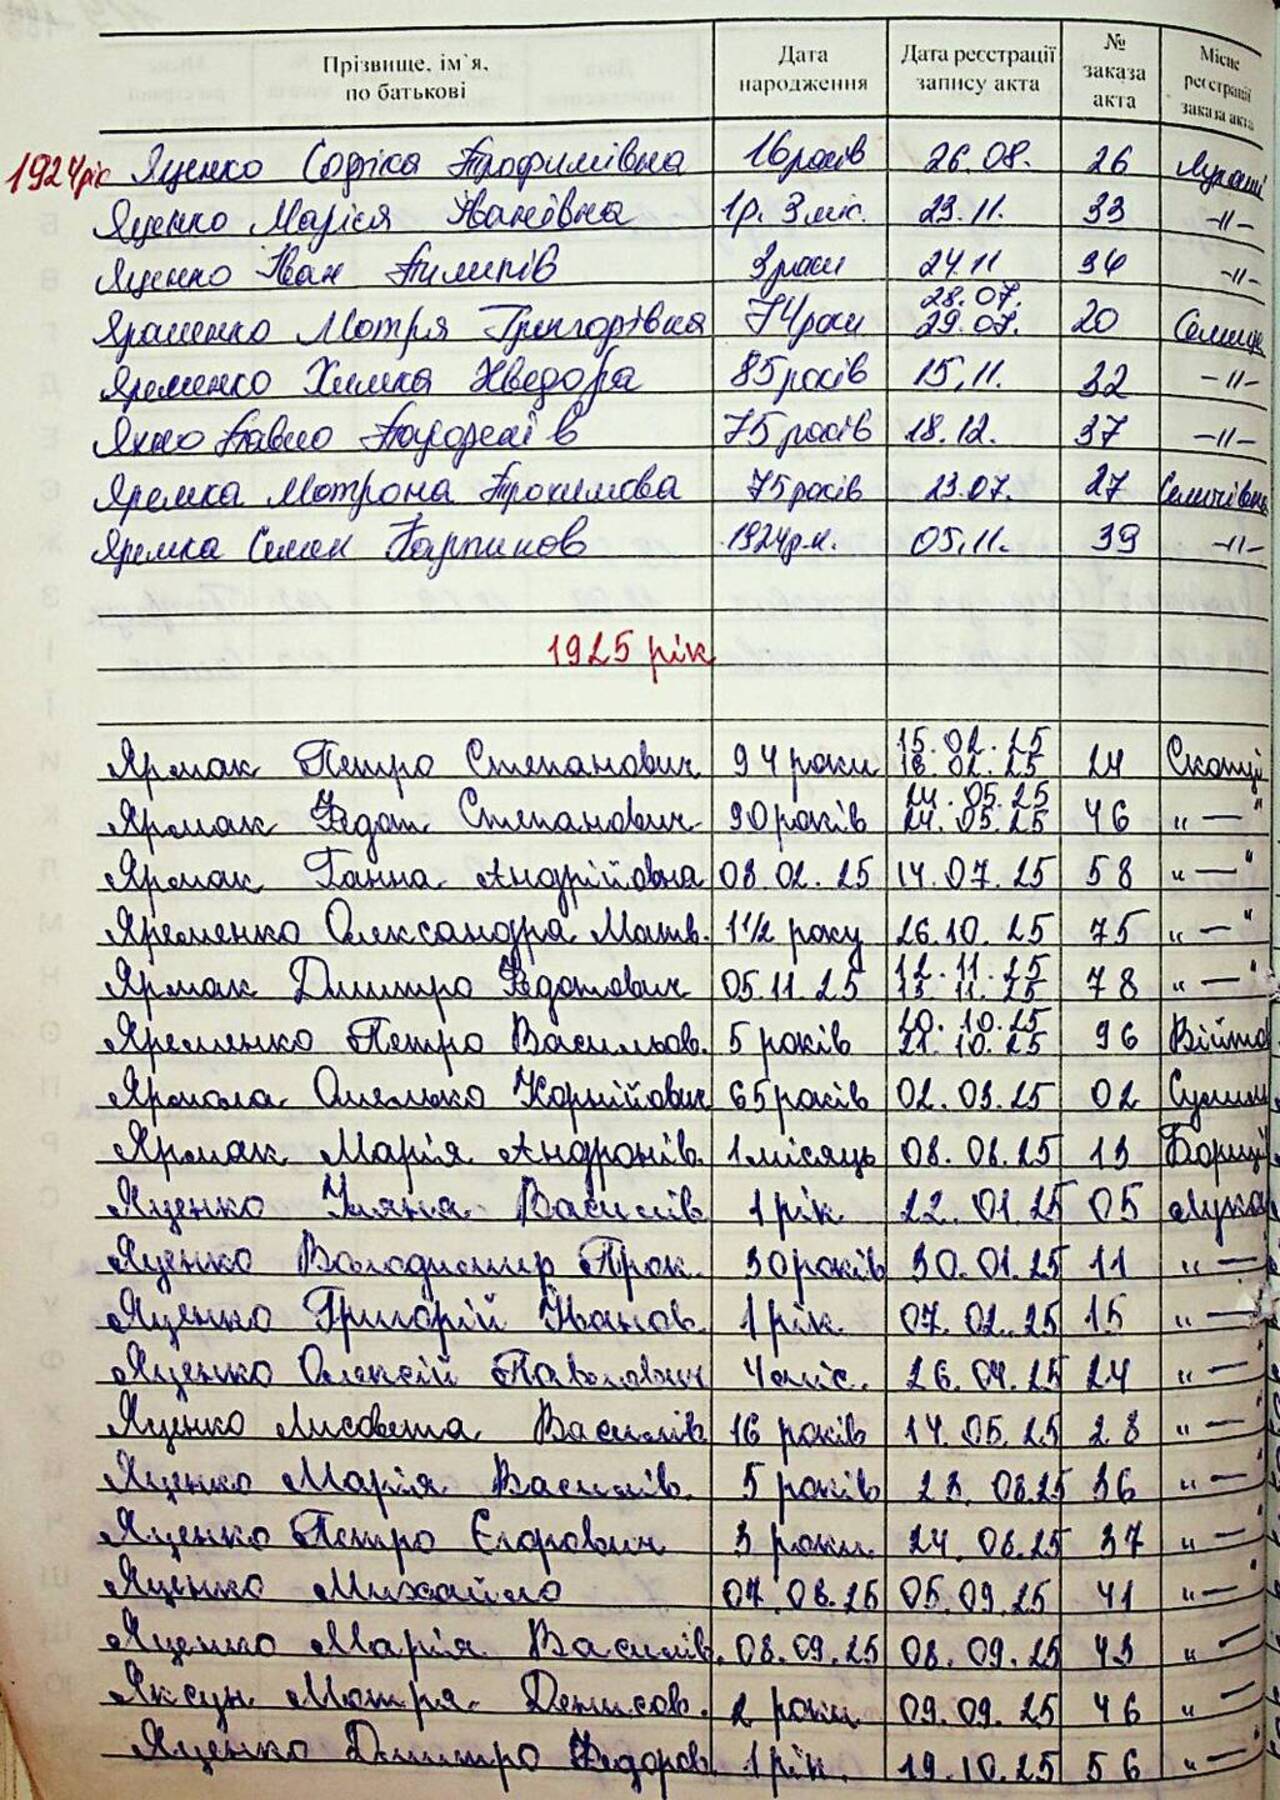 Прізвище, ім`я, по батькові Дата народження Дата реєстрації запису акта № заказа акта Місце реєстрації заказа акта
1924 рік Яценко Софія Трофимівна 16 років 26.08. 26 Лукаші
Яценко Марія Іванівна 1р. 3 міс. 23.11. 33 -//-
Яценко Іван Пилипів 3 роки 24.11 34 -//-
28.07.
Яременко Мотря Григорівна 74 роки 29.07. 20 Селище
Яременко Химка Хведора 85 років 15.11. 32 -//-
Яхно Павло 75 років 18.12. 37 -//-
Яремка Мотрона Трохимова 75 років 23.07. 27 Селичівка
Яремка Семен Карпинов 1924р.н. 05.11. 39 -//-
1925 рік
15.02.25
Ярмак Петро Степанович 94 роки 16.02.25 24 Скопці
24.05.25
Ярмак Федот Степанович 90 років 24.05.25 46 "—"
Ярмак Ганна Андрійовна 08.02.25 14.07.25 58 "—"
Яременко Олександра Матв. 1 1/2 року 26.10.25 75 "—"
12.11.25
Ярмак Дмитро Федотович 05.11.25 13.11.25 78 "—"
20.10.25
Яременко Петро Васильов. 5 років 21.10.25 96 Війто
Ярмола Омелько Корнійович 65 років 02.03.25 02 Сулим
Ярмак Марія Андронів. 1 місяць 08.08.25 13 Борщі
Яценко Уляна Василів 1 рік 22.01.25 05 Лука
Яценко Володимир Прок. 30 років 30.01.25 11 "—"
Яценко Григорій Іванов. 1 рік. 07.02.25 15 "—"
Яценко Олексій Павлович 4 міс. 26.04.25 24 "—"
Яценко Лисовета Василів 16 років 14.05.25 28 "—"
Яценко Марія Василів. 5 років 23.08.25 36 "—"
Яценко Петро Єгорович 3 роки 24.08.25 37 "—"
Яценко Михайло 07.08.25 05.09.25 41 "—"
Яценко Марія Василів. 08.09.25 08.09.25 43 "—"
Яксун Мотря Денисов. 2 роки 09.09.25 46 "—"
Яценко Дмитро Федоров. 1 рік. 19.10.25 56 "—"